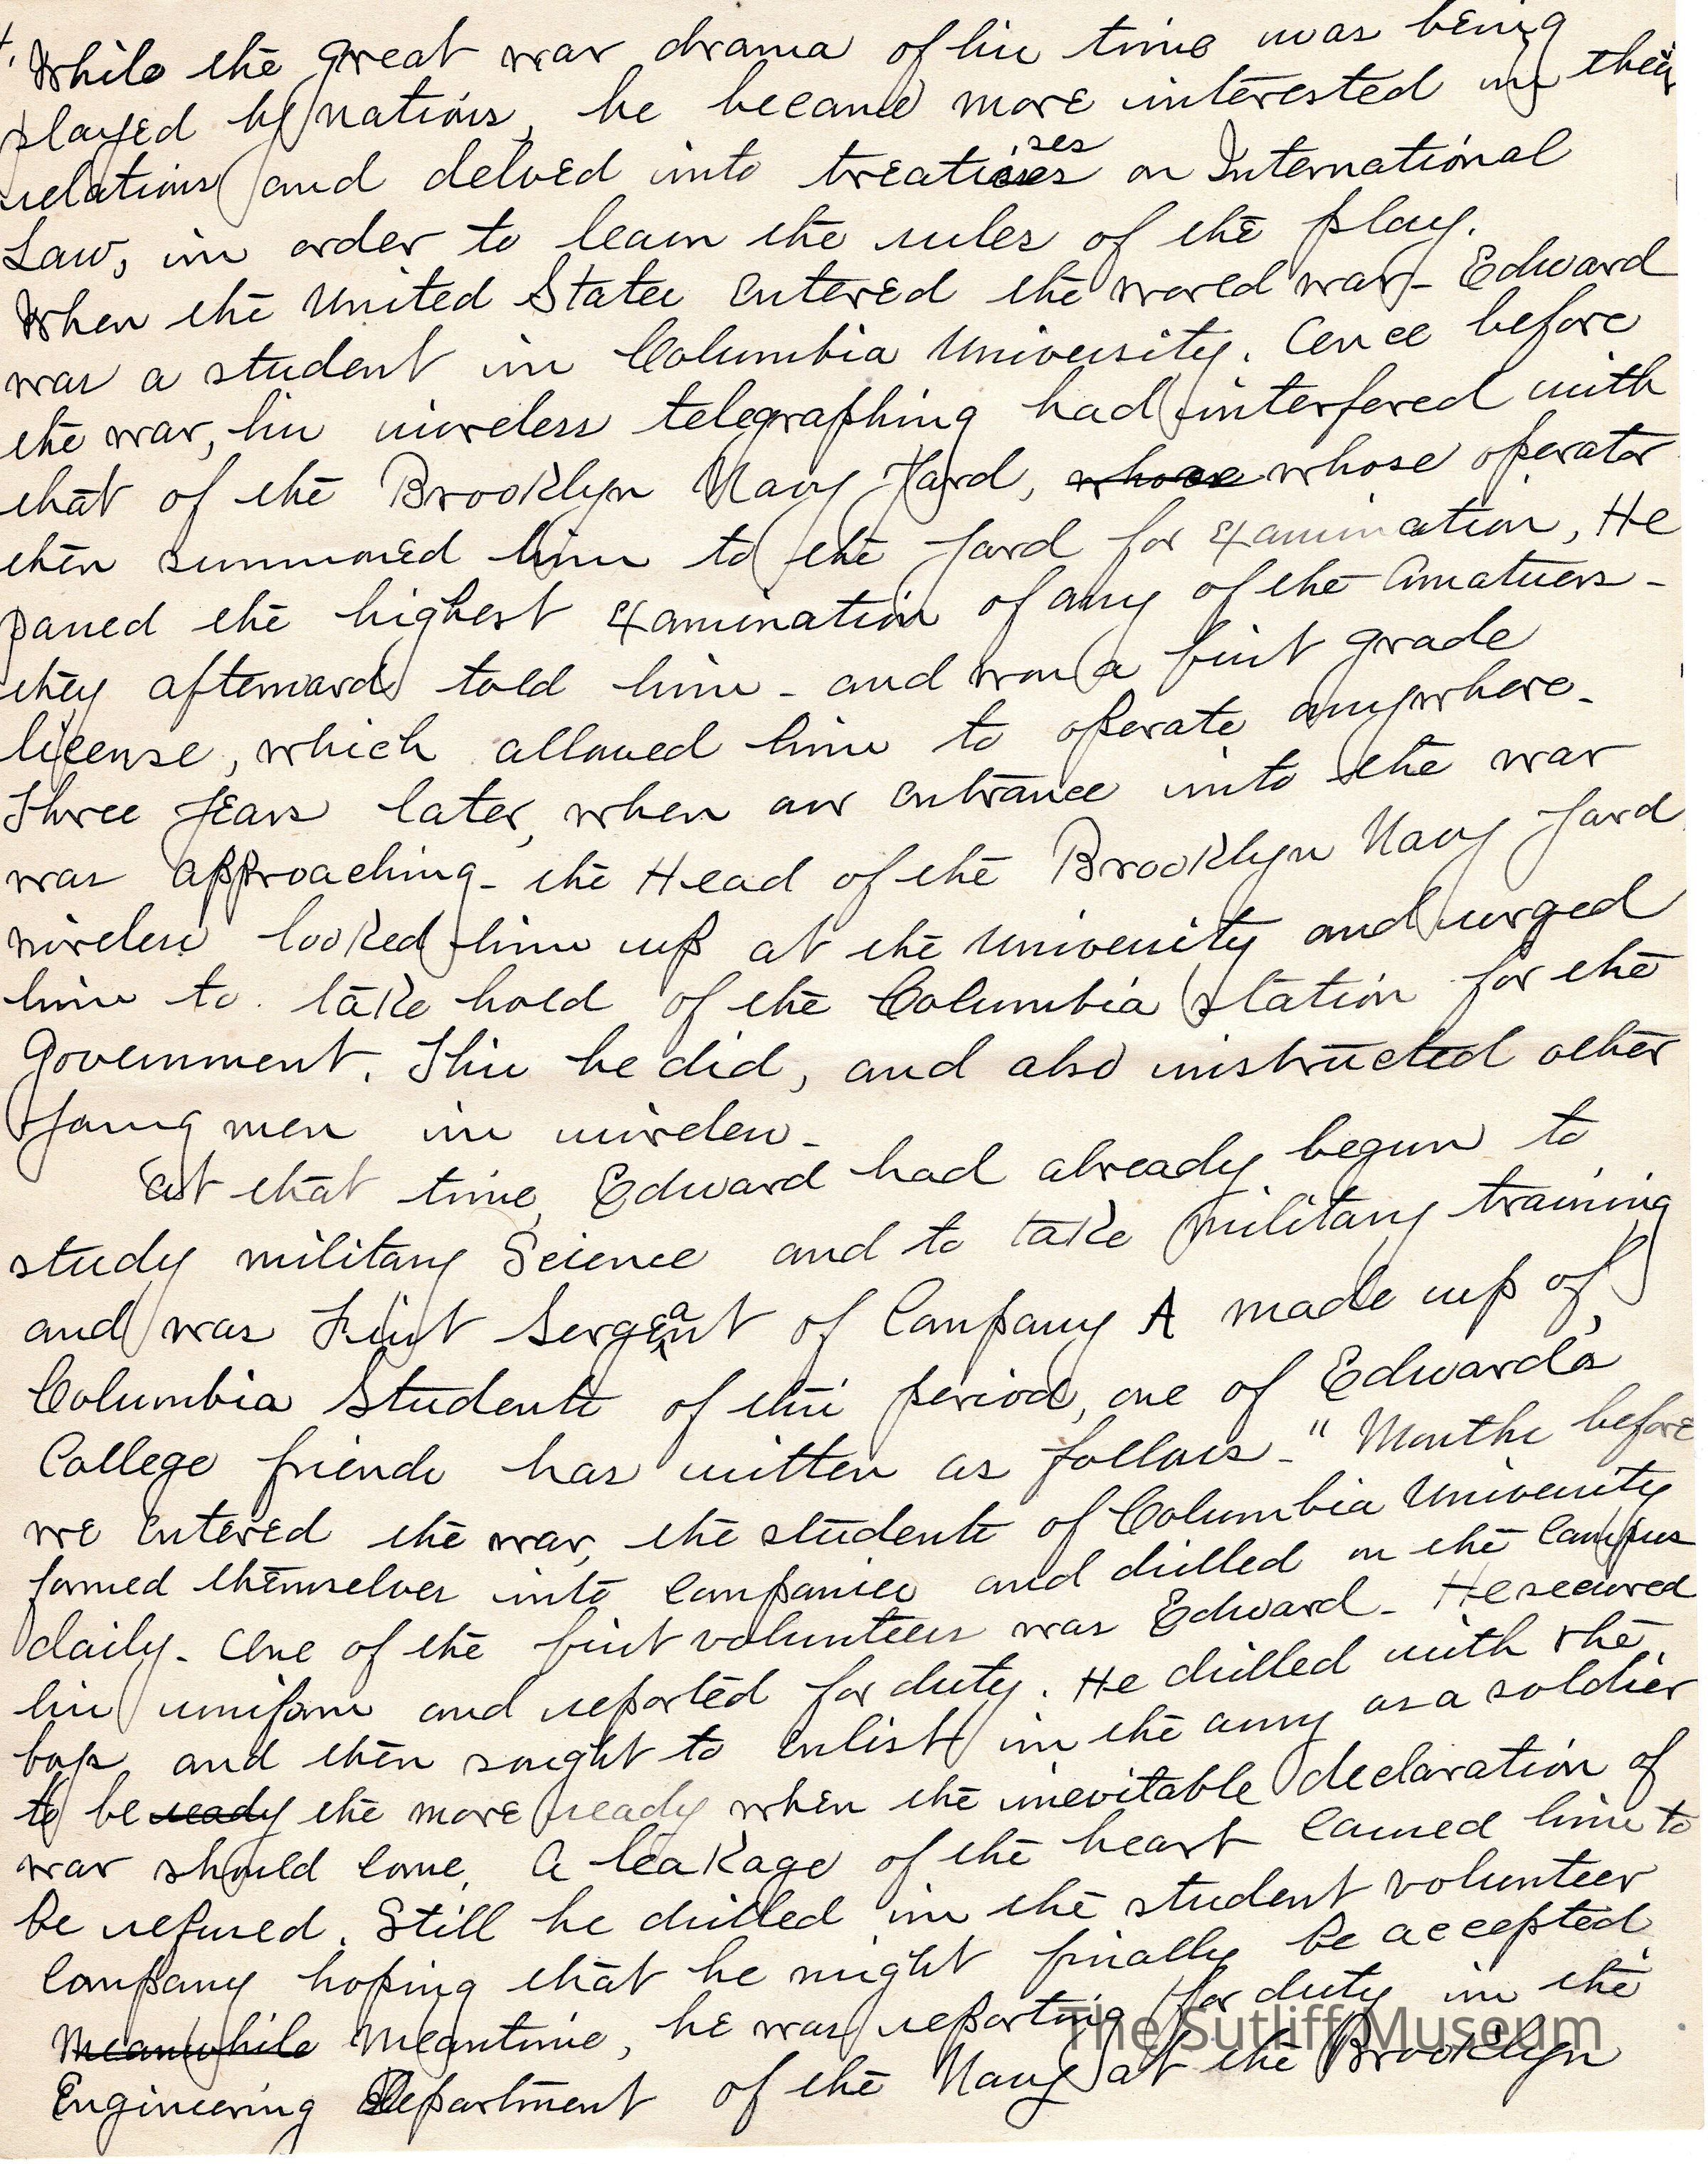 While the great war drama of his time was being
played by nations, he became more interested in their
relations and delved into treatises on International
Law, in order to learn the rules of the play.
When the United States entered the world war - Edward
was a student in Columbia University. Once before
the war, his wireless telegraphing had interfered with
that of the Brooklyn Navy Yard, whose whose operator
then summoned him to the Yard for examination, He
passed the highest examination of any of the Amatuers -
they afterward told him - and won a first grade
license, which allowed him to operate anywhere -
Three years later, when our entrance into the war
was approaching - the Head of the Brooklyn Navy Yard
wireless looked him up at the University and urged
him to take hold of the Columbia station for the
Government. This he did, and also instructed other
young men in wireless -
At that time, Edward had already begun to
study military Science and to take military training
and was First Sergeant of Company A made up of
Columbia Students of this period, one of Edward's
College friends has written as follows - " Months before
we entered the war, the students of Columbia University
formed themselves into companies and drilled on the Campus
daily - One of the first volunteers was Edward - He secured
his uniform and reported for duty. He drilled with the
boys and then sought to enlist in the army as a soldier
to be ready the more ready when the inevitable declaration of
war should come. A leakage of the heart caused him to
be refused. Still he drilled in the student volunteer
Company hoping that he might finally be accepted
Meanwhile Meantime, he was reporting for duty in the
Engineering Department of the Navy at the Brooklyn
The Sutliff Museum